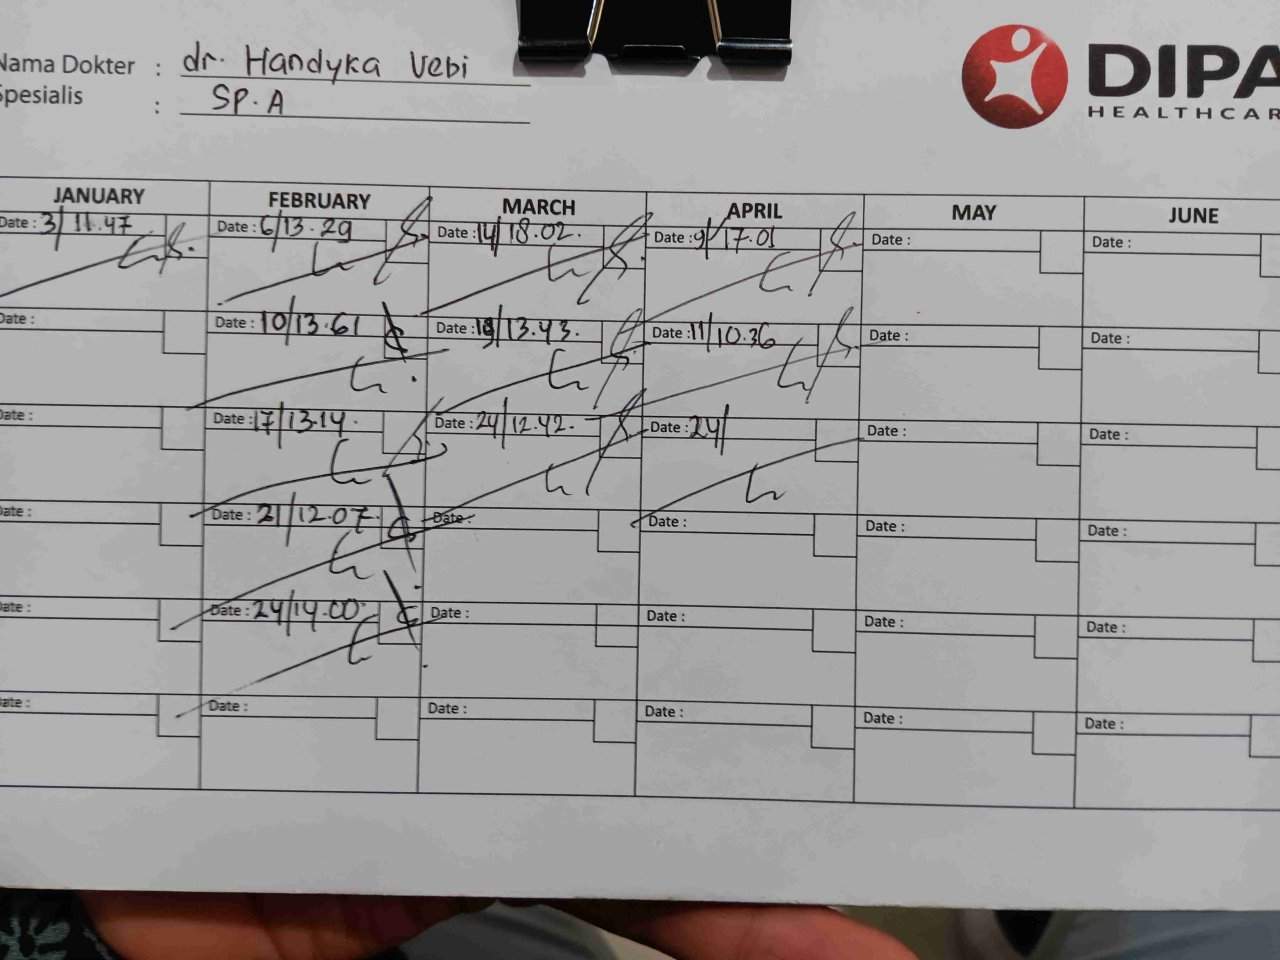 Nama Dokter : dr. Handyka Vebi
Spesialis : SP. A
DIPA
HEALTHCAR
JANUARY FEBRUARY MARCH APRIL MAY JUNE
Date : 3/ 11.47 Date : 6/13.29 Date : 14/ 18.02. Date : 9/ 17.01 Date : Date :
Date : Date : 10/13.61 Date : 19/13.43. Date : 11/10.36 Date : Date :
Date : Date : 17/13.14. Date : 24/12.42. Date : 24/ Date : Date :
Date : Date : 21/12.07. Date : Date : Date : Date :
Date : Date : 24/14.00. Date : Date : Date : Date :
Date : Date : Date : Date : Date : Date :